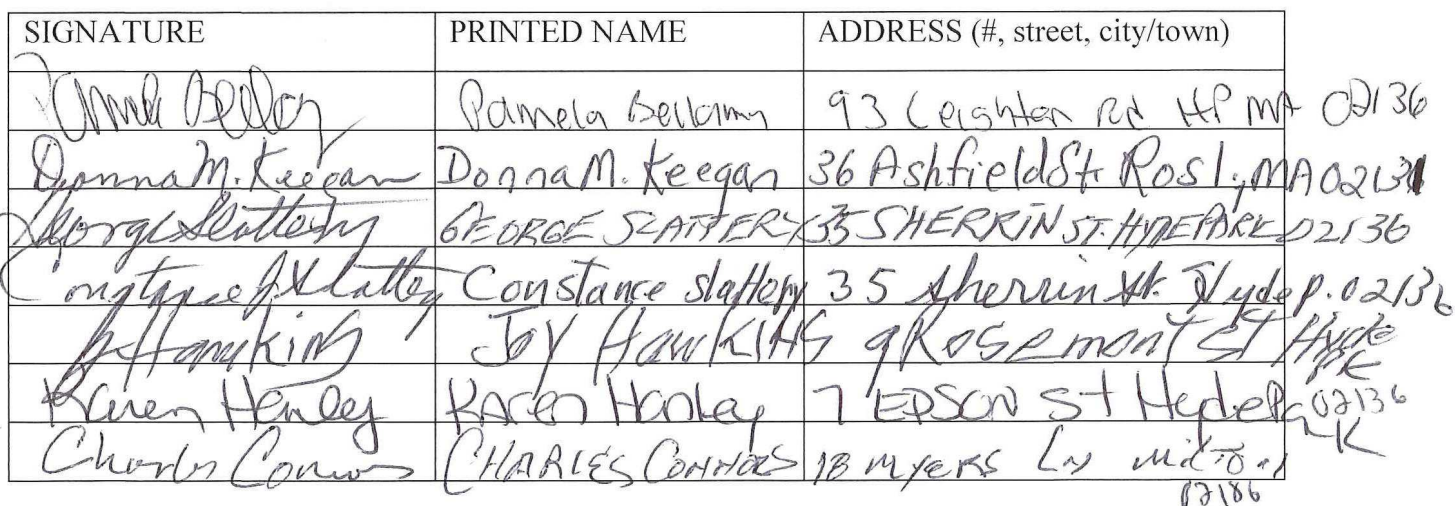 SIGNATURE PRINTED NAME ADDRESS (#, street, city/town)
Pamela Bellamy 93 Leighton Rd HP MA 02136
Donna M. Keegan Donna M. Keegan 36 Ashfield St. Rosl., MA 02131
George Slattery GEORGE SLATTERY 35 SHERRIN ST. HYDE PARK 02136
Constance J Slattery Constance Slattery 35 Sherrin St. Hyde P. 02136
J Hawkins Joy HawKINS 9 Rosemont St Hyde
PK
Karen Hanley KAren Hanley 7 EDSON St Hyde Park 02136
Charles Connors CHARLES CONNORS 18 MYERS Ln Milton
02186